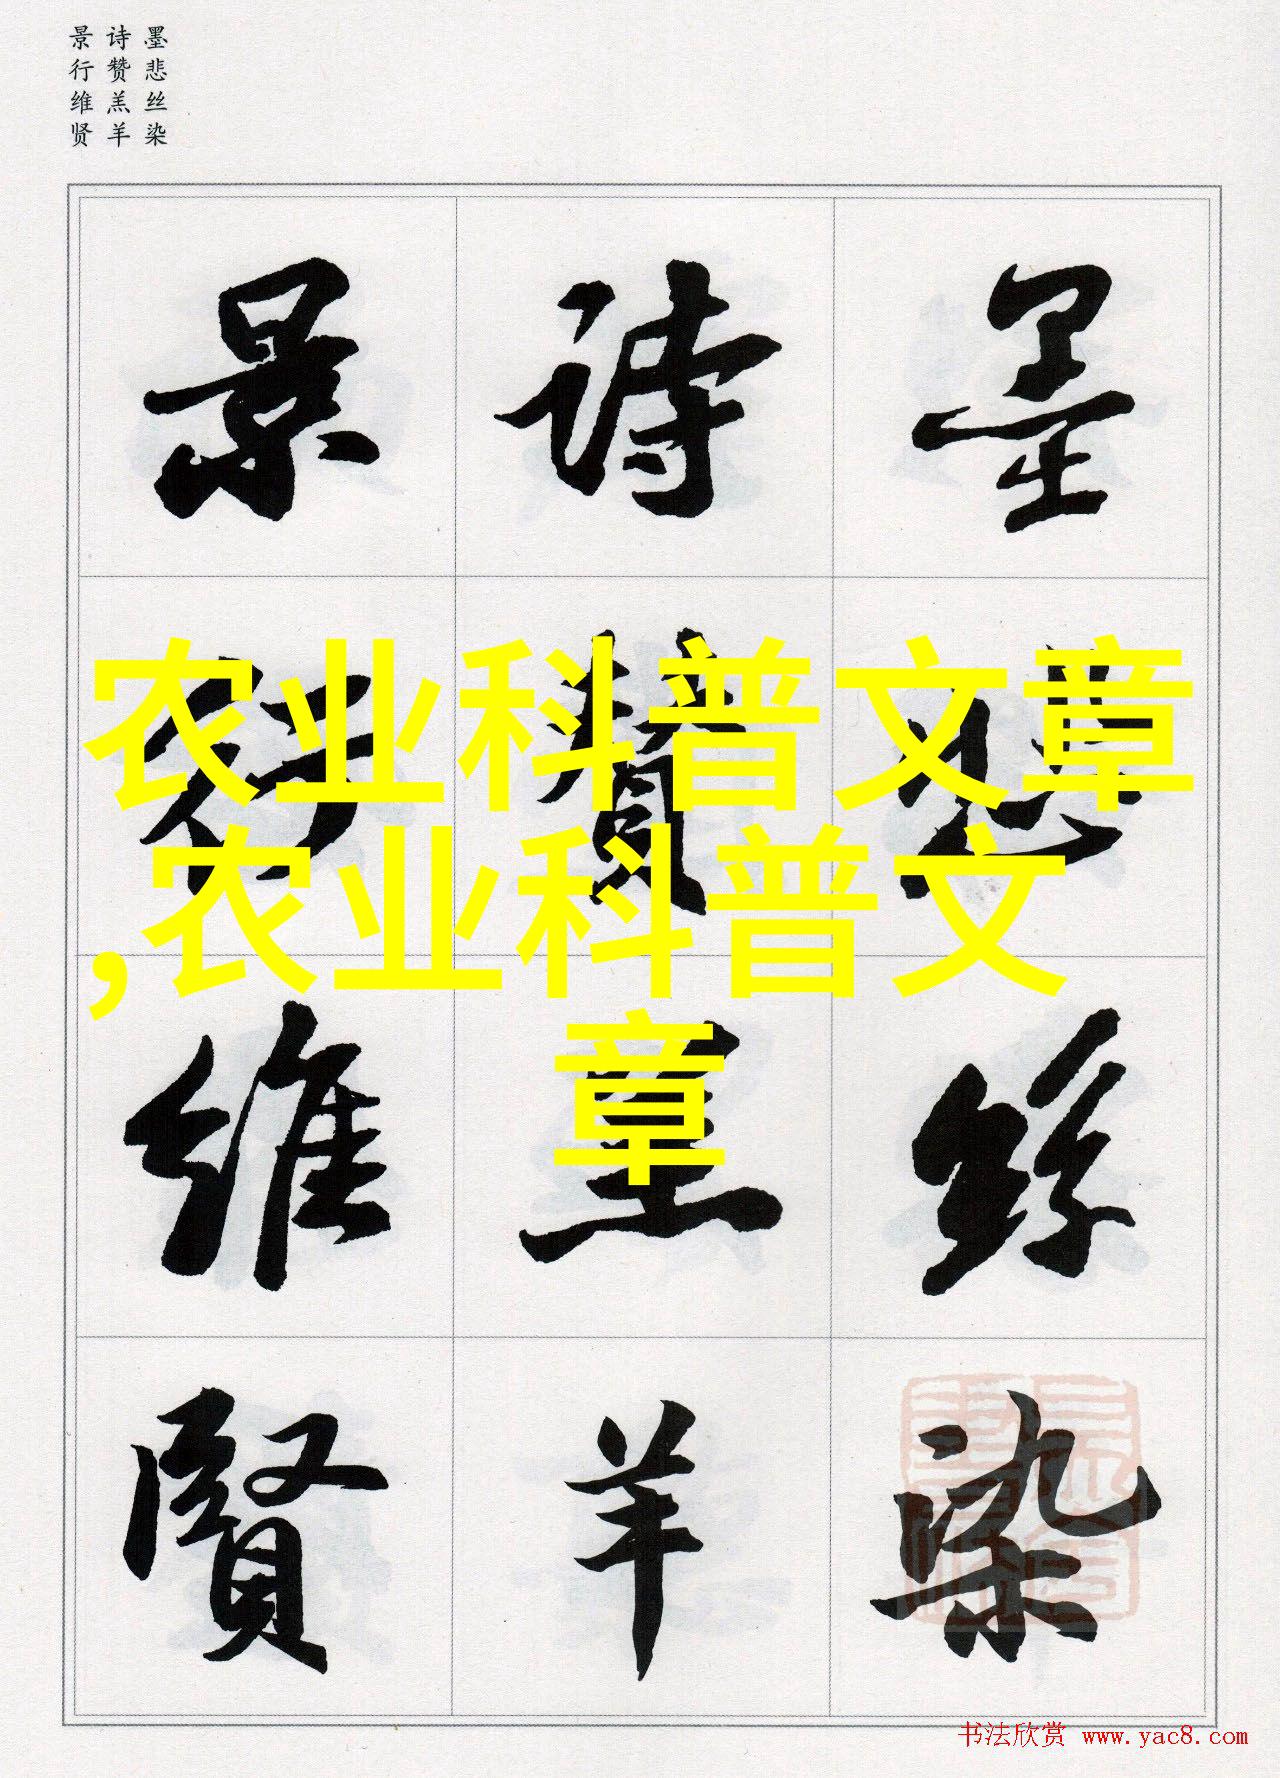 墨悲丝染
诗赞羔羊
景行维贤
墨悲絲染
詩贊羔羊
景行維賢
农业科普文章
,农业科普文
章
书法欣赏 www.yac8.com